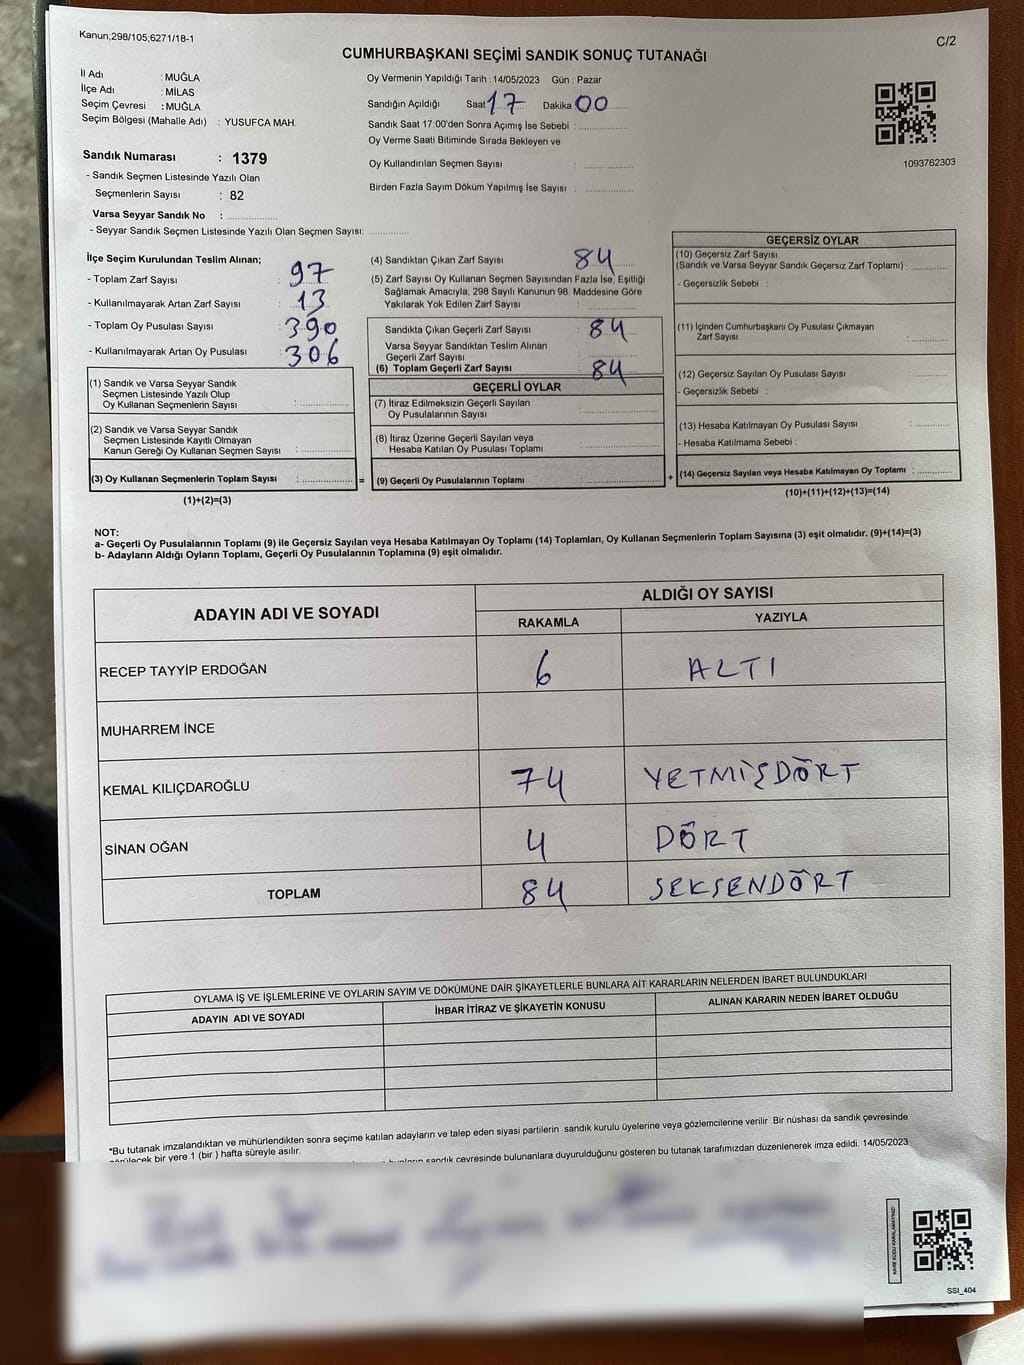 Kanun;298/105;6271/18-1
C/2
CUMHURBAŞKANI SEÇİMİ SANDIK SONUÇ TUTANAĞI
İl Adı : MUĞLA
İlçe Adı : MİLAS
Seçim Çevresi : MUĞLA
Seçim Bölgesi (Mahalle Adı) : YUSUFCA MAH.
Oy Vermenin Yapıldığı Tarih : 14/05/2023 Gün : Pazar
Sandığın Açıldığı Saat 17 Dakika 00
Sandık Saat 17:00'den Sonra Açımış İse Sebebi :
Oy Verme Saati Bitiminde Sırada Bekleyen ve
Oy Kullandırılan Seçmen Sayısı :
Birden Fazla Sayım Döküm Yapılmış İse Sayısı :
1093762303
Sandık Numarası : 1379
- Sandık Seçmen Listesinde Yazılı Olan
Seçmenlerin Sayısı : 82
Varsa Seyyar Sandık No :
- Seyyar Sandık Seçmen Listesinde Yazılı Olan Seçmen Sayısı:
İlçe Seçim Kurulundan Teslim Alınan;
- Toplam Zarf Sayısı : 97
- Kullanılmayarak Artan Zarf Sayısı : 13
- Toplam Oy Pusulası Sayısı : 390
- Kullanılmayarak Artan Oy Pusulası : 306
(1) Sandık ve Varsa Seyyar Sandık
Seçmen Listesinde Yazılı Olup
Oy Kullanan Seçmenlerin Sayısı :
(2) Sandık ve Varsa Seyyar Sandık
Seçmen Listesinde Kayıtlı Olmayan
Kanun Gereği Oy Kullanan Seçmen Sayısı :
(3) Oy Kullanan Seçmenlerin Toplam Sayısı : =
(1)+(2)=(3)
(4) Sandıktan Çıkan Zarf Sayısı : 84
(5) Zarf Sayısı Oy Kullanan Seçmen Sayısından Fazla İse, Eşitliği
Sağlamak Amacıyla, 298 Sayılı Kanunun 98. Maddesine Göre
Yakılarak Yok Edilen Zarf Sayısı :
Sandıkta Çıkan Geçerli Zarf Sayısı : 84
Varsa Seyyar Sandıktan Teslim Alınan
Geçerli Zarf Sayısı :
(6) Toplam Geçerli Zarf Sayısı : 84
GEÇERLİ OYLAR
(7) İtiraz Edilmeksizin Geçerli Sayılan
Oy Pusulalarının Sayısı :
(8) İtiraz Üzerine Geçerli Sayılan veya
Hesaba Katılan Oy Pusulası Toplamı :
(9) Geçerli Oy Pusulalarının Toplamı : +
GEÇERSİZ OYLAR
(10) Geçersiz Zarf Sayısı
(Sandık ve Varsa Seyyar Sandık Geçersiz Zarf Toplamı) :
- Geçersizlik Sebebi :
(11) İçinden Cumhurbaşkanı Oy Pusulası Çıkmayan
Zarf Sayısı :
(12) Geçersiz Sayılan Oy Pusulası Sayısı :
- Geçersizlik Sebebi :
(13) Hesaba Katılmayan Oy Pusulası Sayısı :
- Hesaba Katılmama Sebebi :
(14) Geçersiz Sayılan veya Hesaba Katılmayan Oy Toplamı :
(10)+(11)+(12)+(13)=(14)
NOT:
a- Geçerli Oy Pusulalarının Toplamı (9) ile Geçersiz Sayılan veya Hesaba Katılmayan Oy Toplamı (14) Toplamları, Oy Kullanan Seçmenlerin Toplam Sayısına (3) eşit olmalıdır. (9)+(14)=(3)
b- Adayların Aldığı Oyların Toplamı, Geçerli Oy Pusulalarının Toplamına (9) eşit olmalıdır.
ADAYIN ADI VE SOYADI
ALDIĞI OY SAYISI
RAKAMLA YAZIYLA
RECEP TAYYİP ERDOĞAN 6 ALTI
MUHARREM İNCE
KEMAL KILIÇDAROĞLU 74 YETMİŞDÖRT
SİNAN OĞAN 4 DÖRT
TOPLAM 84 SEKSENDÖRT
OYLAMA İŞ VE İŞLEMLERİNE VE OYLARIN SAYIM VE DÖKÜMÜNE DAİR ŞİKAYETLERLE BUNLARA AİT KARARLARIN NELERDEN İBARET BULUNDUKLARI
ADAYIN ADI VE SOYADI İHBAR İTİRAZ VE ŞİKAYETİN KONUSU ALINAN KARARIN NEDEN İBARET OLDUĞU
*Bu tutanak imzalandıktan ve mühürlendikten sonra seçime katılan adayların ve talep eden siyasi partilerin sandık kurulu üyelerine veya gözlemcilerine verilir. Bir nüshası da sandık çevresinde
görülecek bir yere 1 (bir ) hafta süreyle asılır.
sandık çevresinde bulunanlara duyurulduğunu gösteren bu tutanak tarafımızdan düzenlenerek imza edildi. 14/05/2023
KARE KODU KARALAMAYINIZ!
SSI_404